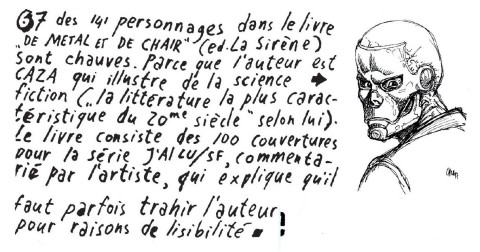 67 des 141 personnages dans le livre
„DE METAL ET DE CHAIR" (ed. La Sirène)
sont chauves. Parce que l'auteur est
CAZA qui illustre de la science ➔
fiction („la littérature la plus carac-
téristique du 20me siècle" selon lui).
Le livre consiste des 100 couvertures
pour la série J'AI LU/SF, commenta-
rié par l'artiste, qui explique qu'il
faut parfois trahir l'auteur
pour raisons de lisibilité ▪ !